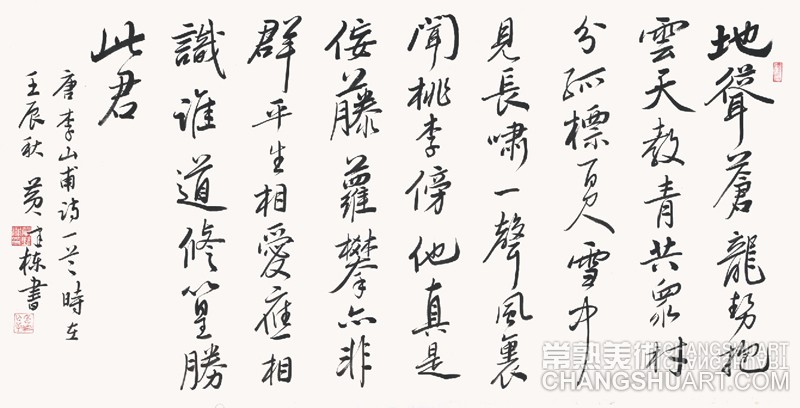 地聳蒼龍勢抱
雲天教青共眾材
分孤標百尺雪中
見長嘯一聲風裏
聞桃李傍他真是
佞藤蘿攀亦非
群平生相愛應相
識誰道脩篁勝
此君
唐李山甫詩一首時在
壬辰秋 黄栋書
常熟美術
CHANGSHUART.COM